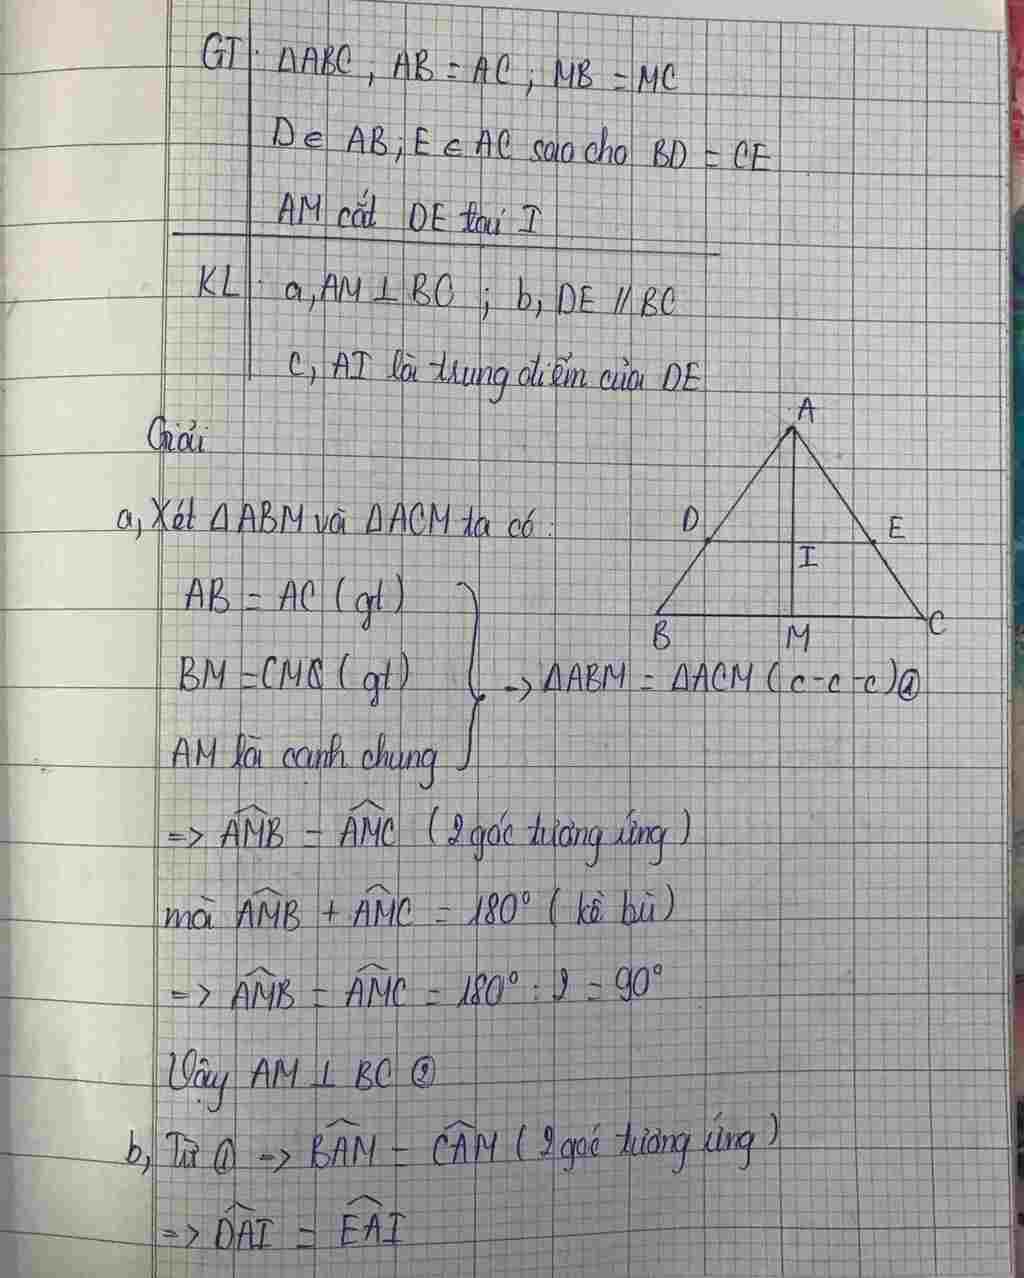 GT ΔABC, AB = AC; MB = MC
D ∈ AB; E ∈ AC sao cho BD = CE
AM cắt DE tại I
KL a, AM ⊥ BC; b, DE // BC
c, AI là trung điểm của DE
Giải
a, Xét ΔABM và ΔACM ta có:
AB = AC (gt)
BM = CM (gt)
AM là cạnh chung
=> ΔABM = ΔACM (c-c-c) ①
A
D
E
I
B
M
C
=> \widehat{AMB} = \widehat{AMC} (2 góc tương ứng)
mà \widehat{AMB} + \widehat{AMC} = 180° (kề bù)
=> \widehat{AMB} = \widehat{AMC} = 180° : 2 = 90°
Vậy AM ⊥ BC ②
b, Từ ① => \widehat{BAM} = \widehat{CAM} (2 góc tương ứng)
=> \widehat{DAI} = \widehat{EAI}